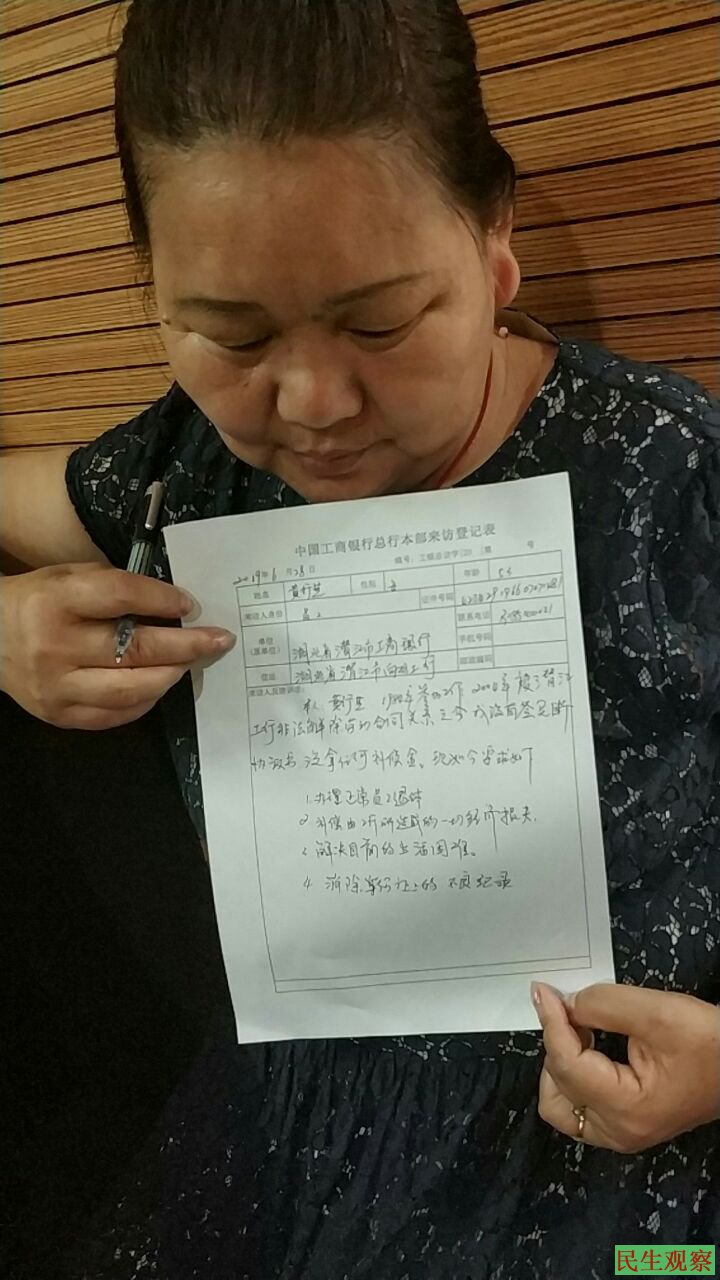 中国工商银行总行本部来访登记表
2019年6月28日 编号：工银总访字（20 ）第 号
姓名 黄行芝 性别 女 年龄 53
来访人身份 员工 证件号码
单位（原单位） 湖北省潜江市工商银行 联系电话
手机号码
住址 湖北省潜江市 工行 邮政编码
来访人反映诉求：
本人 1984年 工作 2004年被潜江
工行非法解除劳动合同关系 至今我没有签买断
协议书 没拿任何补偿金。现如今要求如下
1. 办理正常员工退休
2. 补偿由工行所造成的一切经济损失
3. 解决目前的生活困难。
4. 消除身份证上的不良纪录
民生观察